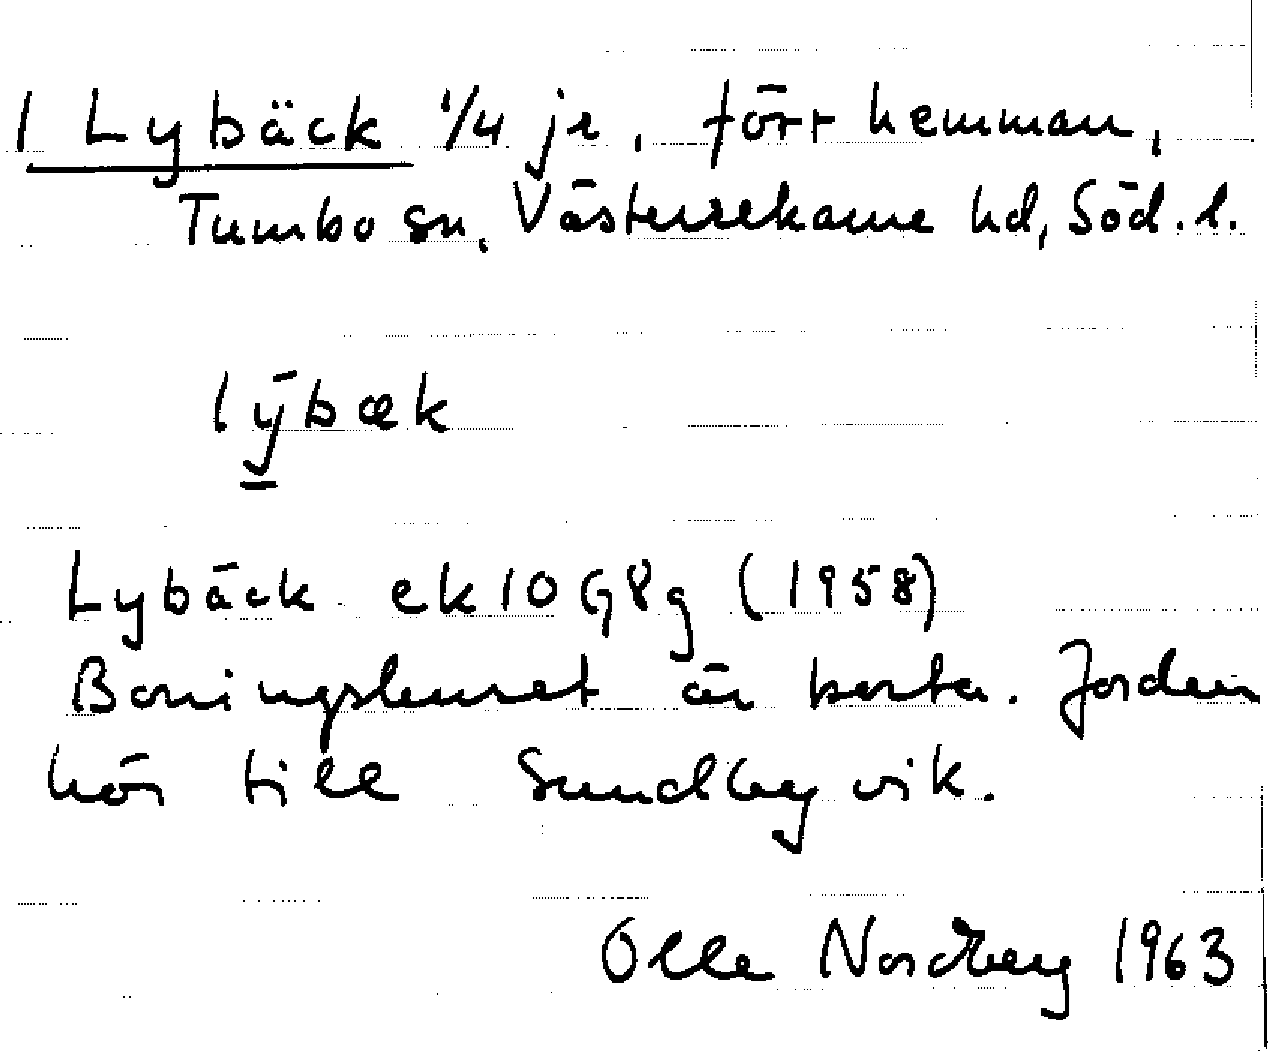 1 Lybäck 1/4 je, förr hemman,
Tumbo sn, Västerrekarne hd, Söd. l.
lȳbæk
Lybäck ek 10 G 8 g (1958)
Boningshuset är borta. Jorden
hör till Sundbyvik.
Olle Nordberg 1963